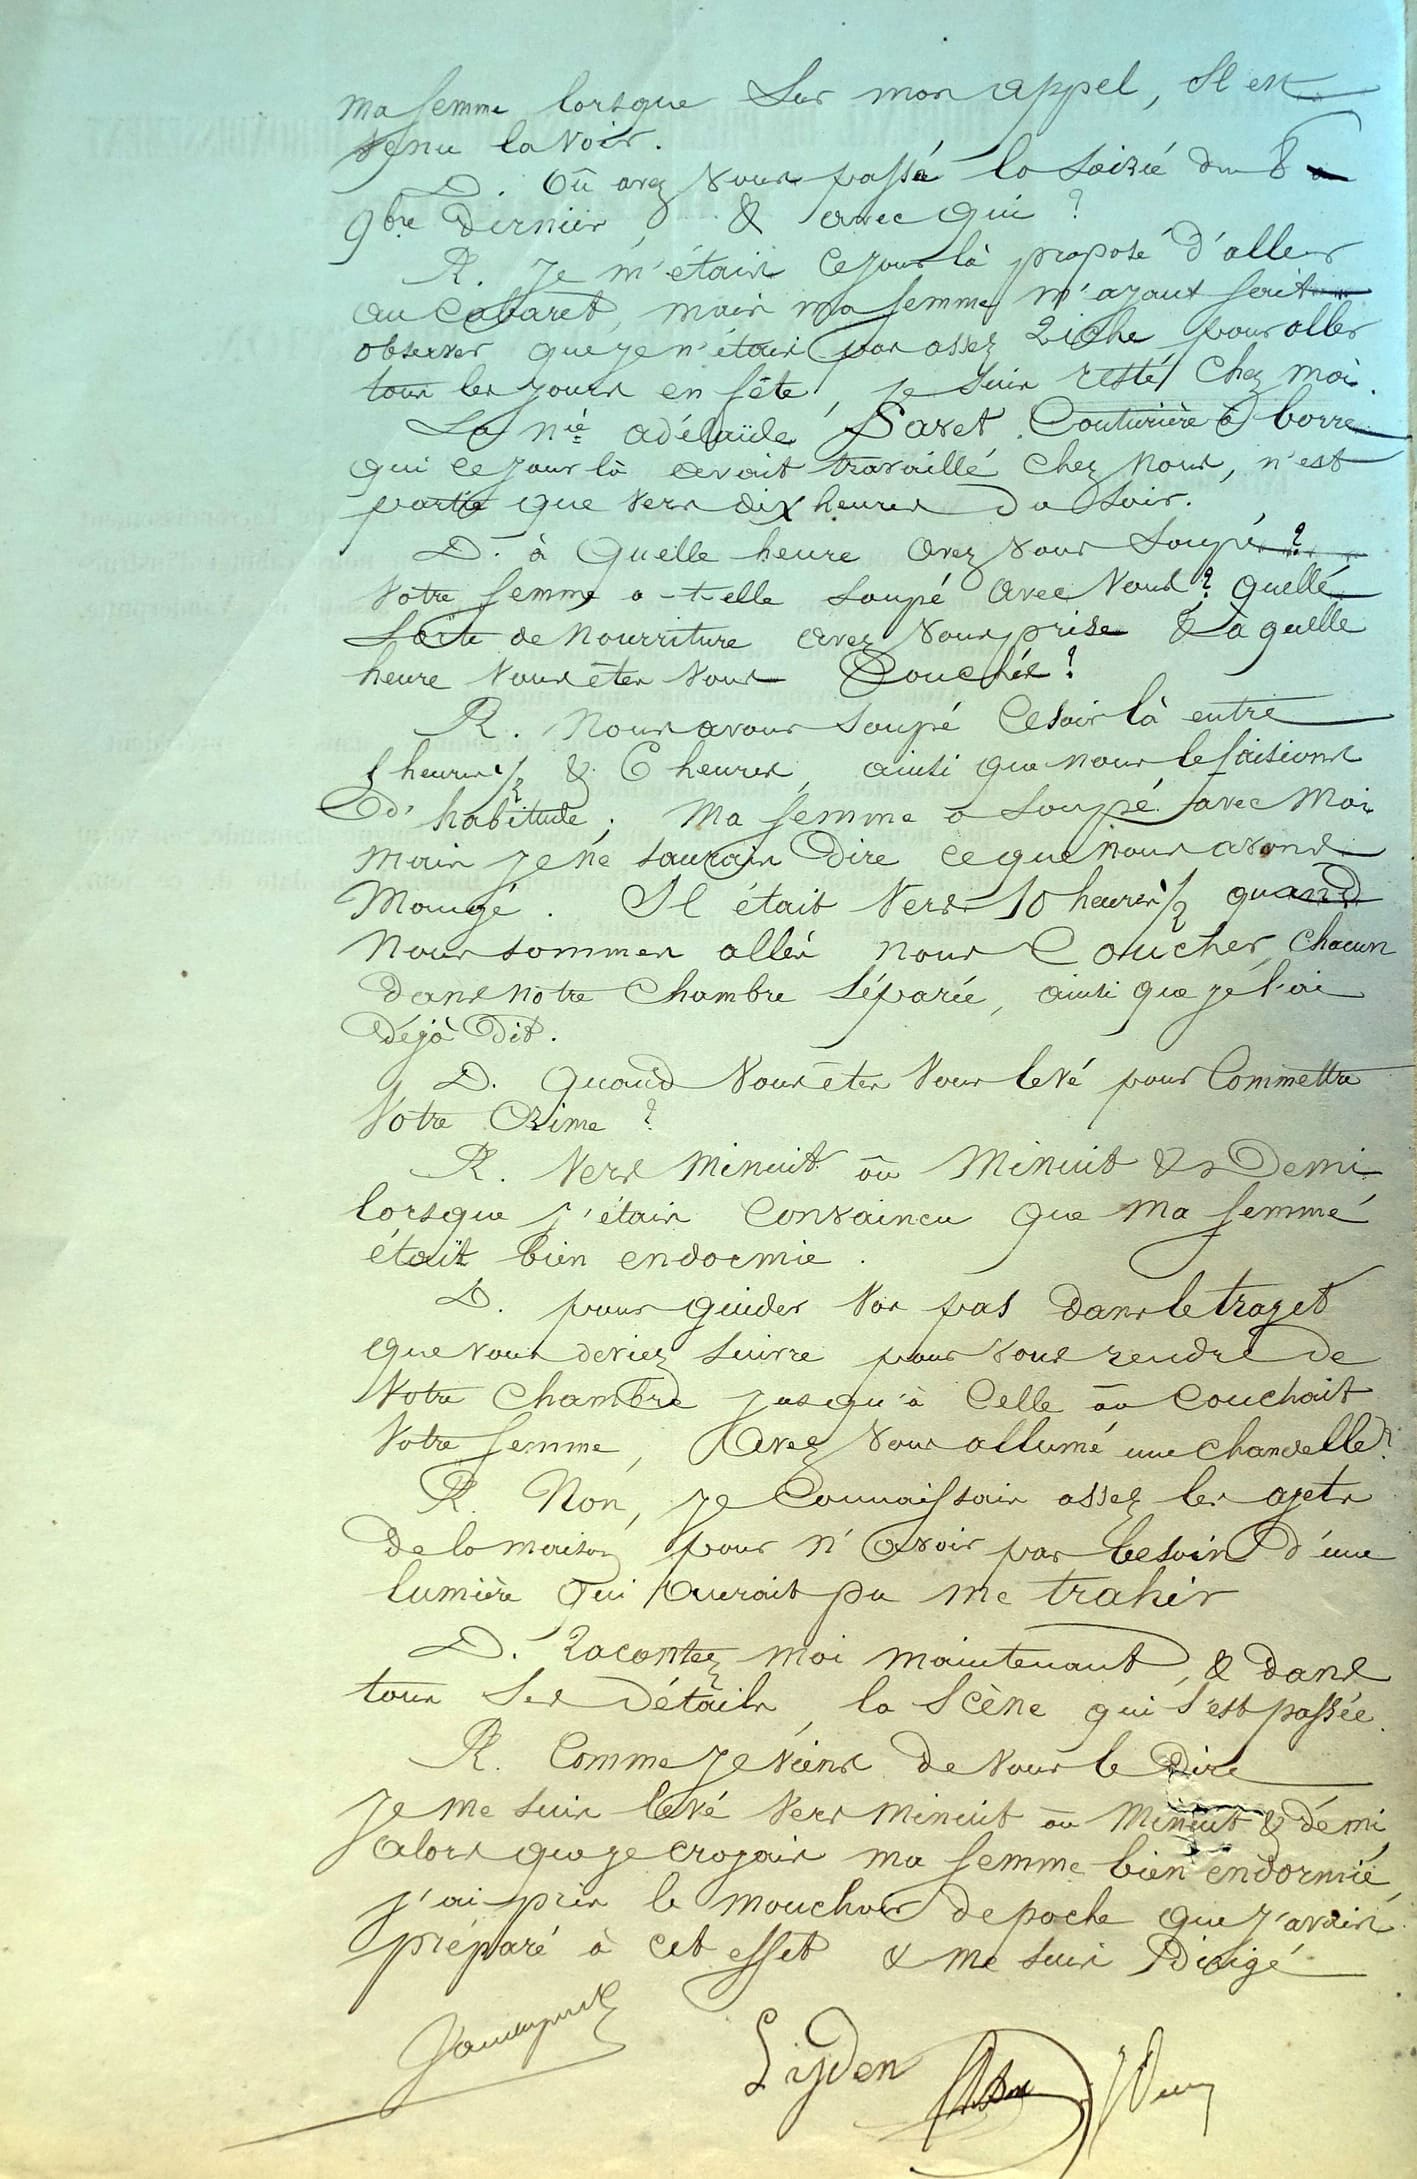 ma femme lorsque sur mon appel, il est
venu la voir.
D. Où avez vous passé la soirée du 8
9bre dernier, & avec qui ?
R. Je m'étais ce jour là proposé d'aller
au cabaret, mais ma femme m'ayant fait
observer que je n'étais pas assez riche pour aller
tous les jours en fête, je suis resté chez moi.
La née adélaïde Savet Couturière à borre
qui ce jour là avait travaillé chez nous, n'est
partie que vers dix heures du soir.
D. à quelle heure avez vous soupé ?
Votre femme a-t-elle soupé avec vous ? quelle
sorte de nourriture avez vous prise & à quelle
heure vous êtes vous couchés ?
R. Nous avons soupé ce soir là entre
5 heures 1/2 & 6 heures, ainsi que nous le faisions
d'habitude ; ma femme a soupé avec moi
mais je ne saurais dire ce que nous avons
mangé. Il était vers 10 heures 1/2 quand
nous sommes allés nous coucher, chacun
dans notre chambre séparée, ainsi que je l'ai
déjà dit.
D. Quand vous êtes vous levé pour commettre
votre crime ?
R. Vers minuit ou minuit & demi
lorsque j'étais convaincu que ma femme
était bien endormie.
D. pour guider vos pas dans le trajet
que vous deviez suivre pour vous rendre de
votre chambre jusqu'à celle où couchait
votre femme, avez vous allumé une chandelle ?
R. Non, je connaissais assez les ajets
de la maison pour n'avoir pas besoin d'une
lumière qui aurait pu me trahir
D. Racontez moi maintenant, & dans
tous ses détails, la scène qui s'est passée.
R. Comme je viens de vous le dire
je me suis levé vers minuit ou minuit & demi,
alors que je croyais ma femme bien endormie,
j'ai pris le mouchoir de poche que j'avais
préparé à cet effet & me suis dirigé
Lijden